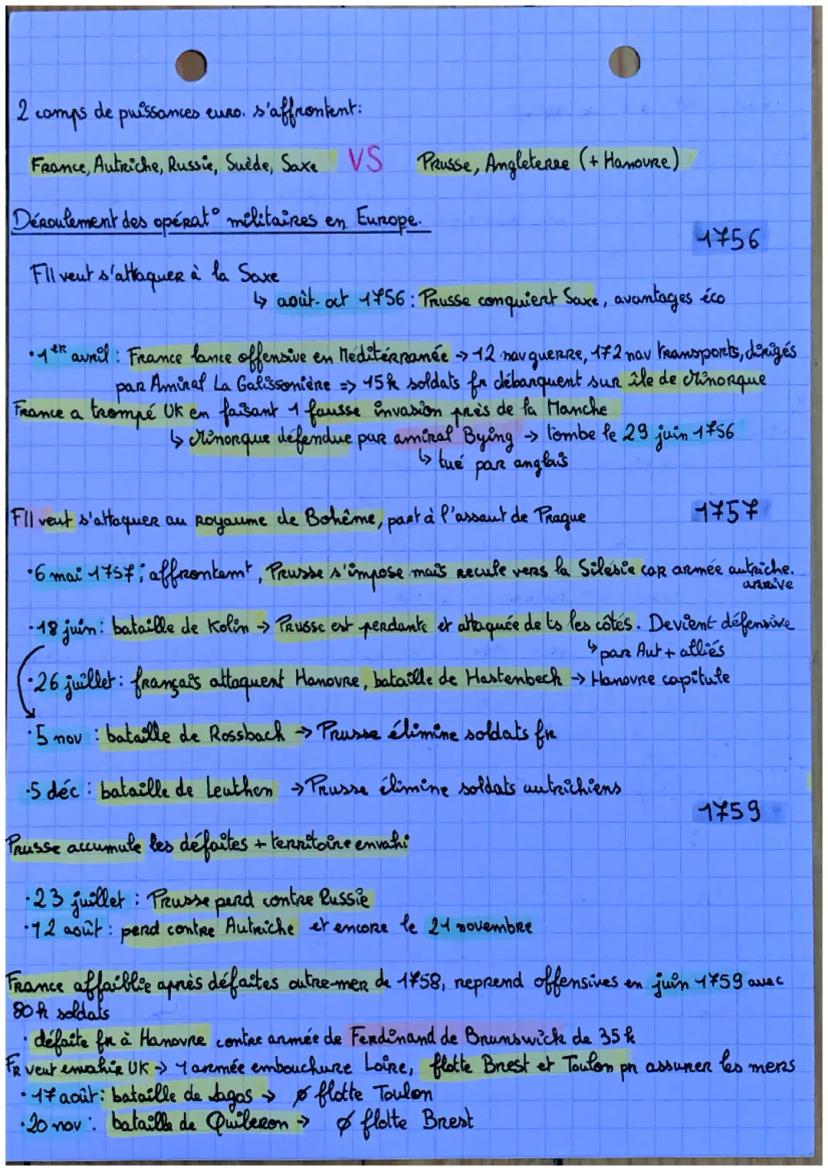 2 camps de puissances euro. s'affrontent:
France, Autriche, Russie, Suède, Saxe VS Prusse, Angleterre (+ Hanovre)
Déroulement des opérat° militaires en Europe.
1756
FII veut s'attaquer à la Saxe
↳ août-oct 1756 : Prusse conquiert Saxe, avantages éco
• 1er avril : France lance offensive en Méditérranée → 12 nav guerre, 172 nav transports, dirigés
par Amiral La Galissonière => 15k soldats fr débarquent sur île de Minorque
France a trompé UK en faisant 1 fausse invasion près de la Manche
↳ Minorque défendue par amiral Bying → tombe le 29 juin 1756
↳ tué par anglais
1757
FII veut s'attaquer au royaume de Bohême, part à l'assaut de Prague
• 6 mai 1757 ; affrontemt, Prusse s'impose mais recule vers la Silésie car armée autriche.
arrive
• 18 juin : bataille de Kolin → Prusse est perdante et attaquée de ts les côtés. Devient défensive
↳ par Aut + alliés
• 26 juillet : français attaquent Hanovre, bataille de Hastenbeck → Hanovre capitule
• 5 nov : bataille de Rossbach → Prusse élimine soldats fr
• 5 déc : bataille de Leuthen → Prusse élimine soldats autrichiens
1759
Prusse accumule les défaites + territoire envahi
• 23 juillet : Prusse perd contre Russie
• 12 août : perd contre Autriche et encore le 21 novembre
France affaiblie après défaites outre-mer de 1758, reprend offensives en juin 1759 avec
80k soldats
• défaite fr à Hanovre contre armée de Ferdinand de Brunswick de 35k
FR veut envahir UK → 1 armée embouchure Loire, flotte Brest et Toulon pr assurer les mers
• 17 août : bataille de Lagos → ∅ flotte Toulon
• 20 nov : bataille de Quiberon → ∅ flotte Brest